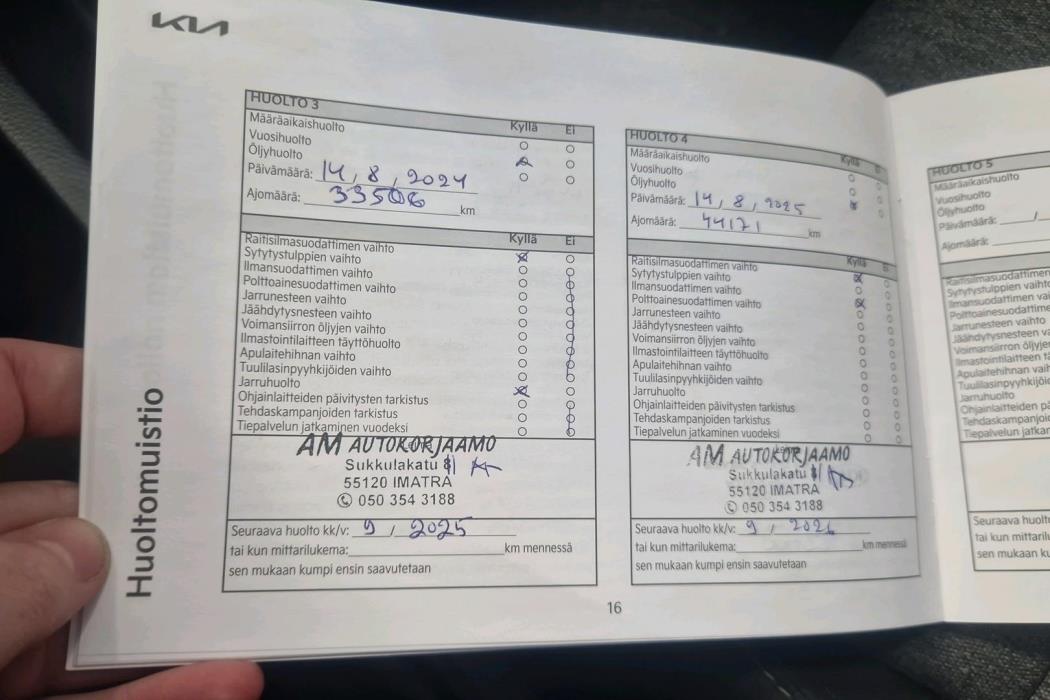 KIA
Huoltomuistio
HUOLTO 3
Kyllä Ei
Määräaikaishuolto
Vuosihuolto
Öljyhuolto
Päivämäärä: 14, 8, 2024
Ajomäärä: 33506 km
Kyllä Ei
Raitisilmasuodattimen vaihto
Sytytystulppien vaihto
Ilmansuodattimen vaihto
Polttoainesuodattimen vaihto
Jarrunesteen vaihto
Jäähdytysnesteen vaihto
Voimansiirron öljyjen vaihto
Ilmastointilaitteen täyttöhuolto
Apulaitehihnan vaihto
Tuulilasinpyyhkijöiden vaihto
Jarruhuolto
Ohjainlaitteiden päivitysten tarkistus
Tehdaskampanjoiden tarkistus
Tiepalvelun jatkaminen vuodeksi
AM AUTOKORJAAMO
Sukkulakatu 8
55120 IMATRA
050 354 3188
Seuraava huolto kk/v: 9 / 2025
tai kun mittarilukema: km mennessä
sen mukaan kumpi ensin saavutetaan
HUOLTO 4
Kyllä Ei
Määräaikaishuolto
Vuosihuolto
Öljyhuolto
Päivämäärä: 14, 8, 2025
Ajomäärä: 44171 km
Kyllä Ei
Raitisilmasuodattimen vaihto
Sytytystulppien vaihto
Ilmansuodattimen vaihto
Polttoainesuodattimen vaihto
Jarrunesteen vaihto
Jäähdytysnesteen vaihto
Voimansiirron öljyjen vaihto
Ilmastointilaitteen täyttöhuolto
Apulaitehihnan vaihto
Tuulilasinpyyhkijöiden vaihto
Jarruhuolto
Ohjainlaitteiden päivitysten tarkistus
Tehdaskampanjoiden tarkistus
Tiepalvelun jatkaminen vuodeksi
AM AUTOKORJAAMO
Sukkulakatu 8
55120 IMATRA
050 354 3188
Seuraava huolto kk/v: 9 / 2026
tai kun mittarilukema: km mennessä
sen mukaan kumpi ensin saavutetaan
16
HUOLTO 5
Määräaikaishuolto
Vuosihuolto
Öljyhuolto
Päivämäärä: /
Ajomäärä:
Raitisilmasuodattimen
Sytytystulppien vaihto
Ilmansuodattimen va
Polttoainesuodattime
Jarrunesteen vaihto
Jäähdytysnesteen va
Voimansiirron öljyje
Ilmastointilaitteen t
Apulaitehihnan vaih
Tuulilasinpyyhkijöid
Jarruhuolto
Ohjainlaitteiden pä
Tehdaskampanjoi
Tiepalvelun jatkam
Seuraava huolt
tai kun mittarilu
sen mukaan ku